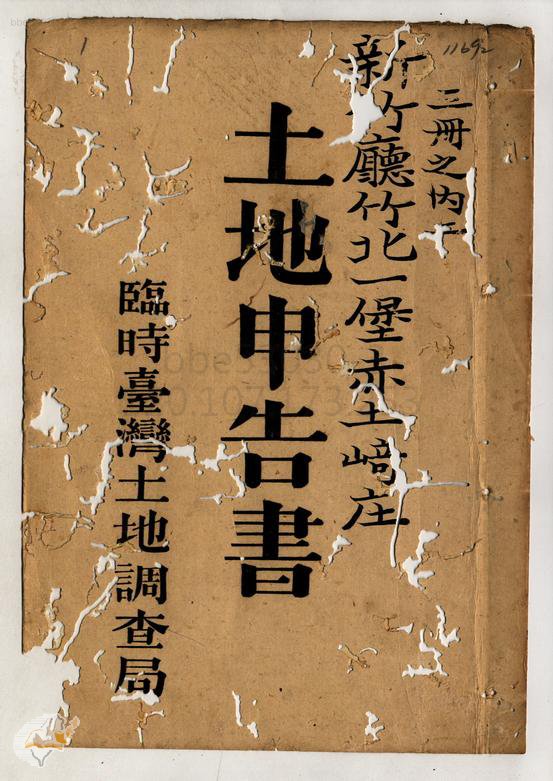 三冊之内
新竹廳竹北一堡赤土崎庄
土地申告書
臨時臺灣土地調查局
1
1169